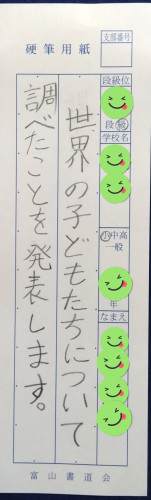 硬筆用紙
支部番号
段級位
段級
学校名
小中高
一般
年
なまえ
世界の子どもたちについて
調べたことを発表します。
富山書道会